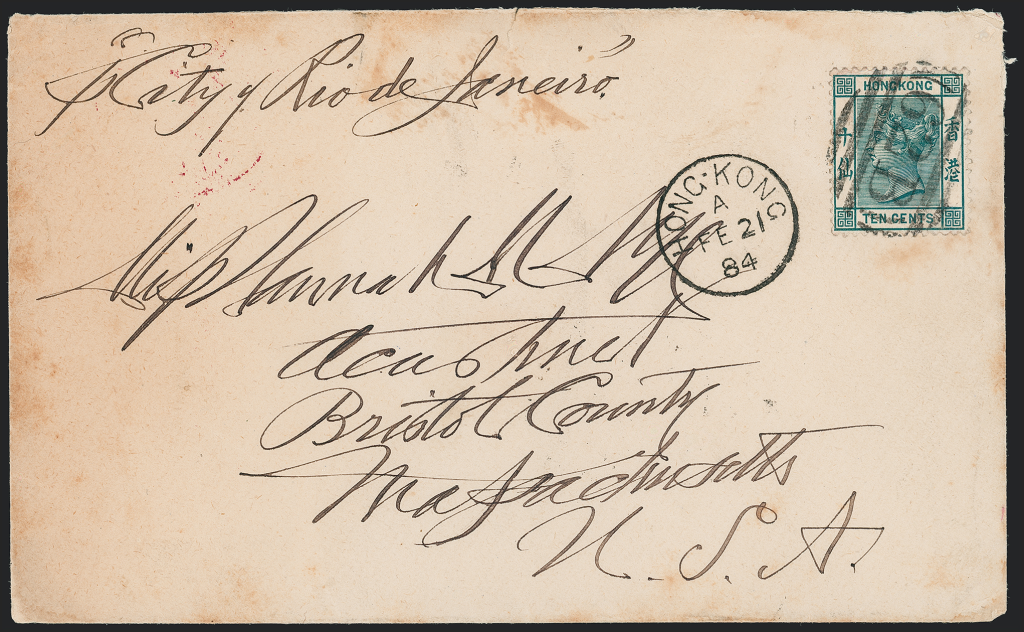 "City of Rio de Janeiro."
HONGKONG
香港
仙
TEN CENTS
HONG-KONG
A
FE 21
84
Miss Hannah M Nye
Acushnet
Bristol County
Massachusetts
U. S. A.